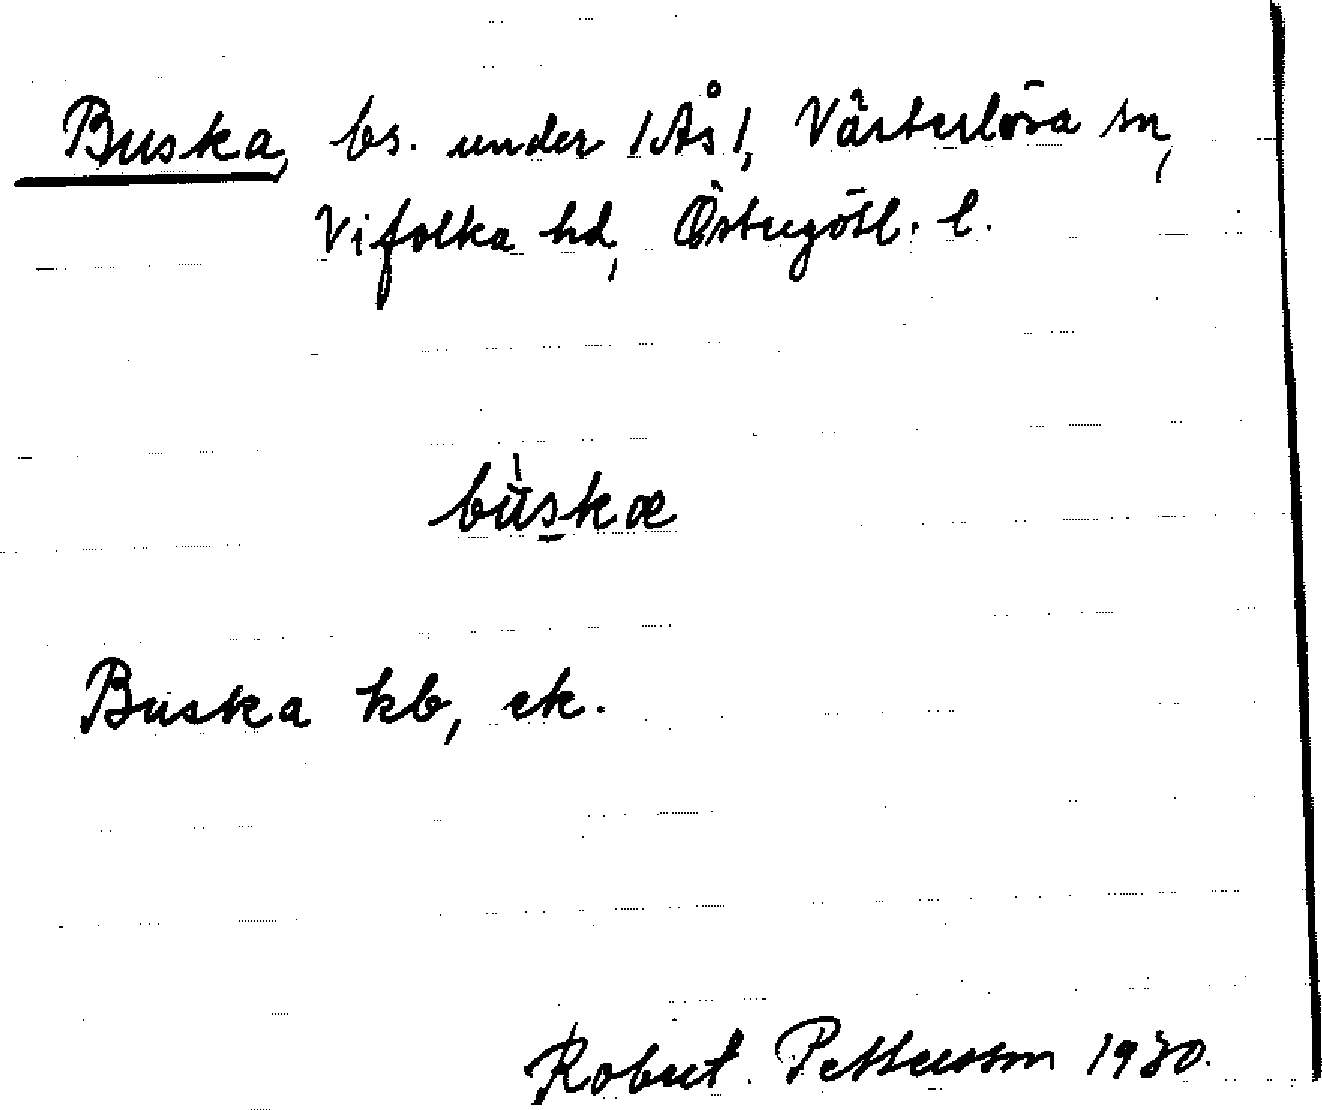 Buska, bs. under /Ås/, Västerlösa sn,
Vifolka hd, Östergötl. l.
bùskæ
Buska kb, ek.
Robert Pettersson 1930.